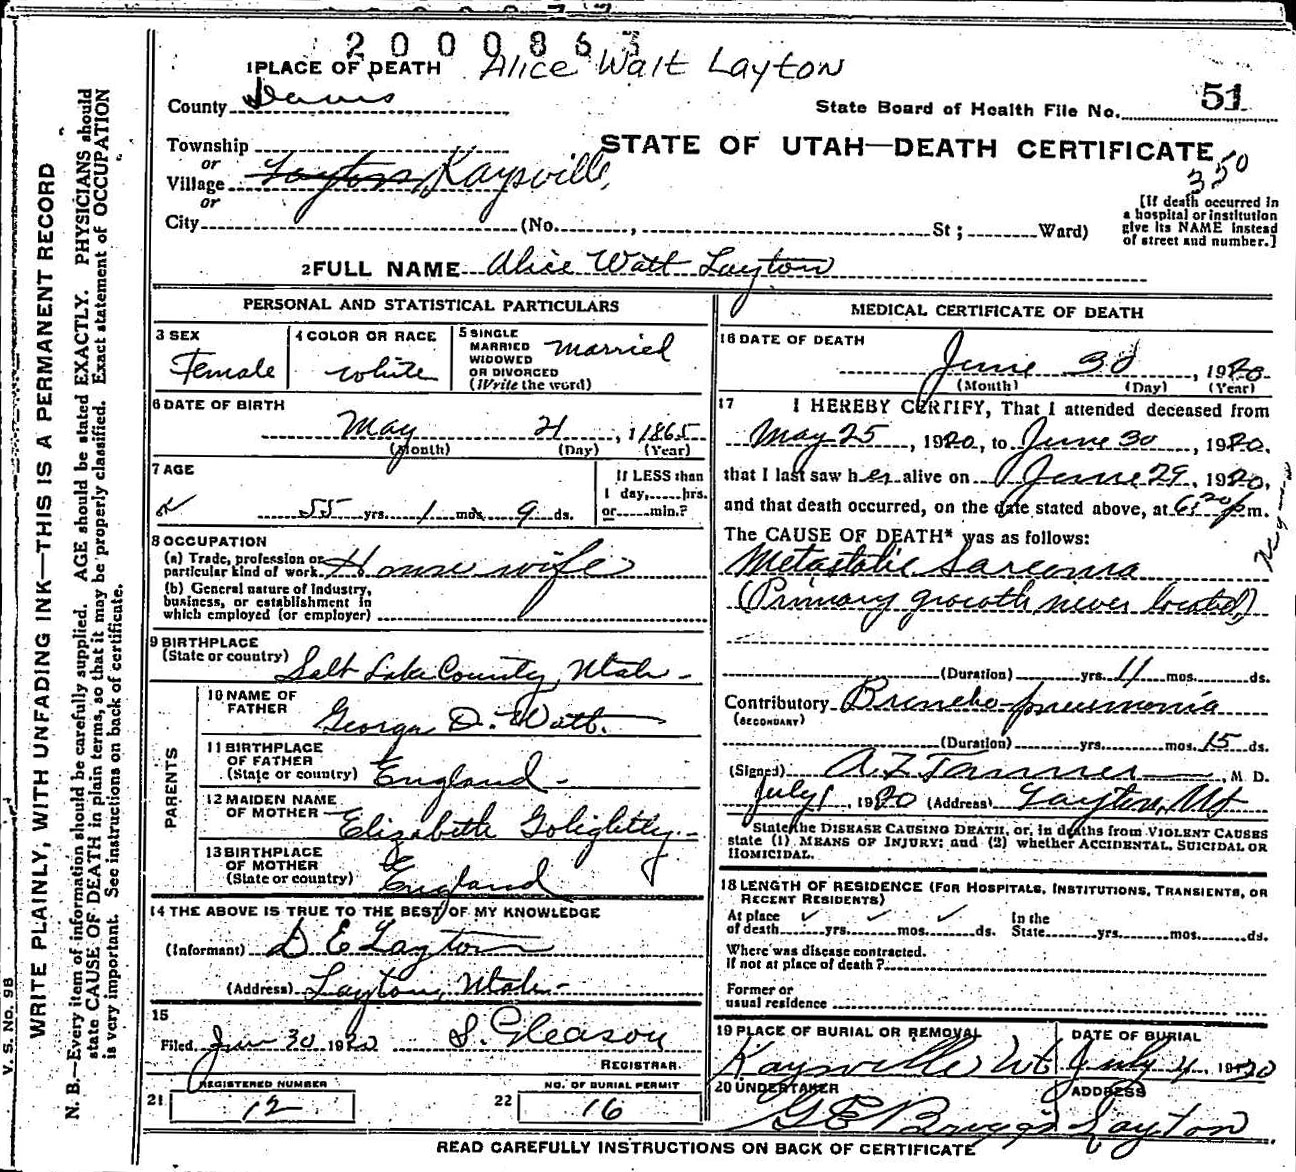 2000863
1 PLACE OF DEATH Alice Watt Layton
County Davis
State Board of Health File No. 51
Township
or
Village Layton Kaysville
or
City (No. , St ; Ward)
STATE OF UTAH—DEATH CERTIFICATE
350
[If death occurred in
a hospital or institution
give its NAME instead
of street and number.]
2 FULL NAME Alice Watt Layton
PERSONAL AND STATISTICAL PARTICULARS
3 SEX
Female
4 COLOR OR RACE
White
5 SINGLE
MARRIED
WIDOWED
OR DIVORCED
(Write the word)
Married
6 DATE OF BIRTH
May 21, 1865
(Month) (Day) (Year)
7 AGE
55 yrs. 1 mos. 9 ds.
If LESS than
1 day, hrs.
or min.?
8 OCCUPATION
(a) Trade, profession or
particular kind of work. House wife
(b) General nature of Industry,
business, or establishment in
which employed (or employer)
9 BIRTHPLACE
(State or country) Salt Lake County, Utah -
PARENTS
10 NAME OF
FATHER George D. Watt.
11 BIRTHPLACE
OF FATHER
(State or country) England -
12 MAIDEN NAME
OF MOTHER Elizabeth Golightly -
13 BIRTHPLACE
OF MOTHER
(State or country) England
14 THE ABOVE IS TRUE TO THE BEST OF MY KNOWLEDGE
(Informant) D E Layton
(Address) Layton, Utah -
15
Filed 30 1920 S. Gleason
REGISTRAR
REGISTERED NUMBER
21 12
NO. OF BURIAL PERMIT
22 16
MEDICAL CERTIFICATE OF DEATH
16 DATE OF DEATH
June 30, 1920
(Month) (Day) (Year)
17 I HEREBY CERTIFY, That I attended deceased from
May 25, 1920, to June 30, 1920.
that I last saw her alive on June 29, 1920.
and that death occurred, on the date stated above, at 6:20 p m.
The CAUSE OF DEATH* was as follows:
Metastatic Sarcoma
(Primary growth never located)
(Duration) yrs. 11 mos. ds.
Contributory Broncho-pneumonia
(SECONDARY)
(Duration) yrs. mos. 15 ds.
(Signed) A. Z. Tanner, M D.
July 1, 1920 (Address) Layton, Ut
State the DISEASE CAUSING DEATH, or, in deaths from VIOLENT CAUSES
state (1) MEANS OF INJURY; and (2) whether ACCIDENTAL, SUICIDAL OR
HOMICIDAL.
18 LENGTH OF RESIDENCE (FOR HOSPITALS, INSTITUTIONS, TRANSIENTS, OR
RECENT RESIDENTS)
At place
of death yrs. mos. ds.
In the
State yrs. mos. ds.
Where was disease contracted.
If not at place of death ?
Former or
usual residence
19 PLACE OF BURIAL OR REMOVAL
Kaysville Ut
DATE OF BURIAL
July 4, 1920
20 UNDERTAKER
G E Briggs
ADDRESS
Layton
READ CAREFULLY INSTRUCTIONS ON BACK OF CERTIFICATE
V. S. No. 98
WRITE PLAINLY, WITH UNFADING INK—THIS IS A PERMANENT RECORD
N. B.—Every item of information should be carefully supplied. AGE should be stated EXACTLY. PHYSICIANS should
state CAUSE OF DEATH in plain terms, so that it may be properly classified. Exact statement of OCCUPATION
is very important. See instructions on back of certificate.